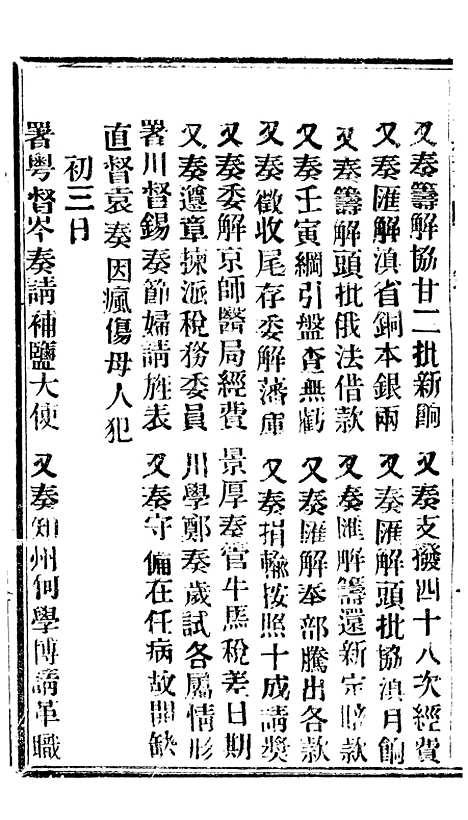 又奏籌解協甘二批新餉　又奏支撥四十八次經費
又奏匯解滇省銅本銀兩　又奏匯解頭批協滇月餉
又奏籌解頭批俄法借款　又奏匯解籌還新定賠款
又奏壬寅綱引盤查無虧　又奏匯解奉部騰出各款
又奏徵收尾存委解藩庫　又奏捐輸按照十成請獎
又奏委解京師醫局經費　景厚奏管牛馬稅差日期
又奏遵章揀派稅務委員　川學鄭奏歲試各屬情形
署川督錫奏節婦請旌表　又奏守備在任病故開缺
直督袁奏因瘋傷母人犯
初三日
署粵督岑奏請補鹽大使　又奏知州何學博請革職